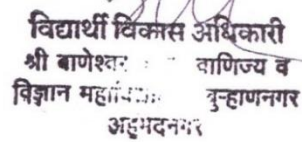 विद्यार्थी विकास अधिकारी
श्री बाणेश्वर वाणिज्य व
विज्ञान बुऱ्हाणनगर
अहमदनगर